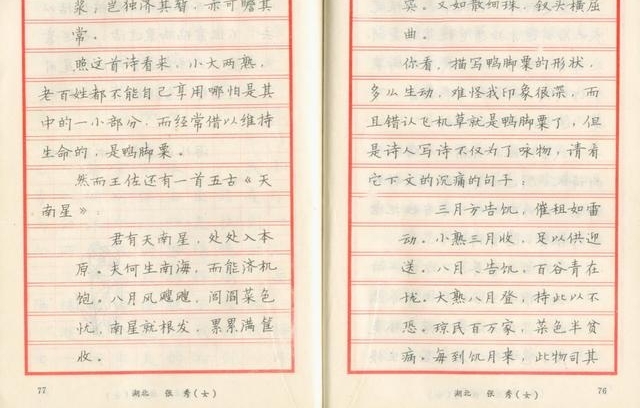 。又如散细珠，钗头横屈
曲。
你看，描写鸭脚粟的形状，
多么生动，难怪我印象很深，而
且错认飞机草就是鸭脚粟了，但
是诗人写诗不仅为了咏物，请看
它下文的沉痛的句子：
三月方告饥，催租如雷
动。小熟三月收，足以供迎
送。八月 告饥，百谷青在
垅。大熟八月登，持此以不
恐。琼民百万家，菜色半贫
病。每到饥月来，此物司其
湖北 张 秀（女） 76
，岂独济其暂，亦可赡其
常。
照这首诗看来，小大两熟，
老百姓都不能自己享用哪怕是其
中的一小部分，而经常借以维持
生命的，是鸭脚粟。
然而王佐还有一首五古《天
南星》：
君有天南星，处处入本
原。夫何生南海，而能济机
饱。八月风飕飕，闾阎菜色
忧，南星就根发，累累满筐
收。
77 湖北 张 秀（女）